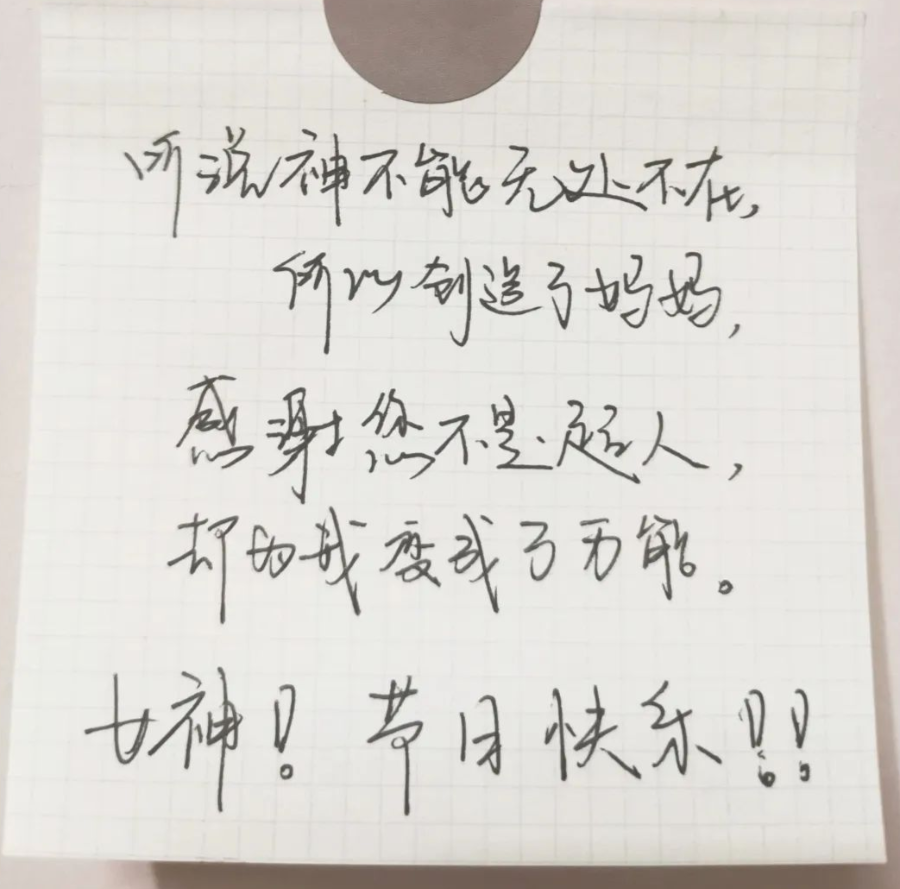 听说神不能无处不在,
所以创造了妈妈,
感谢您不是超人,
却为我变成了万能。
女神！节日快乐！！